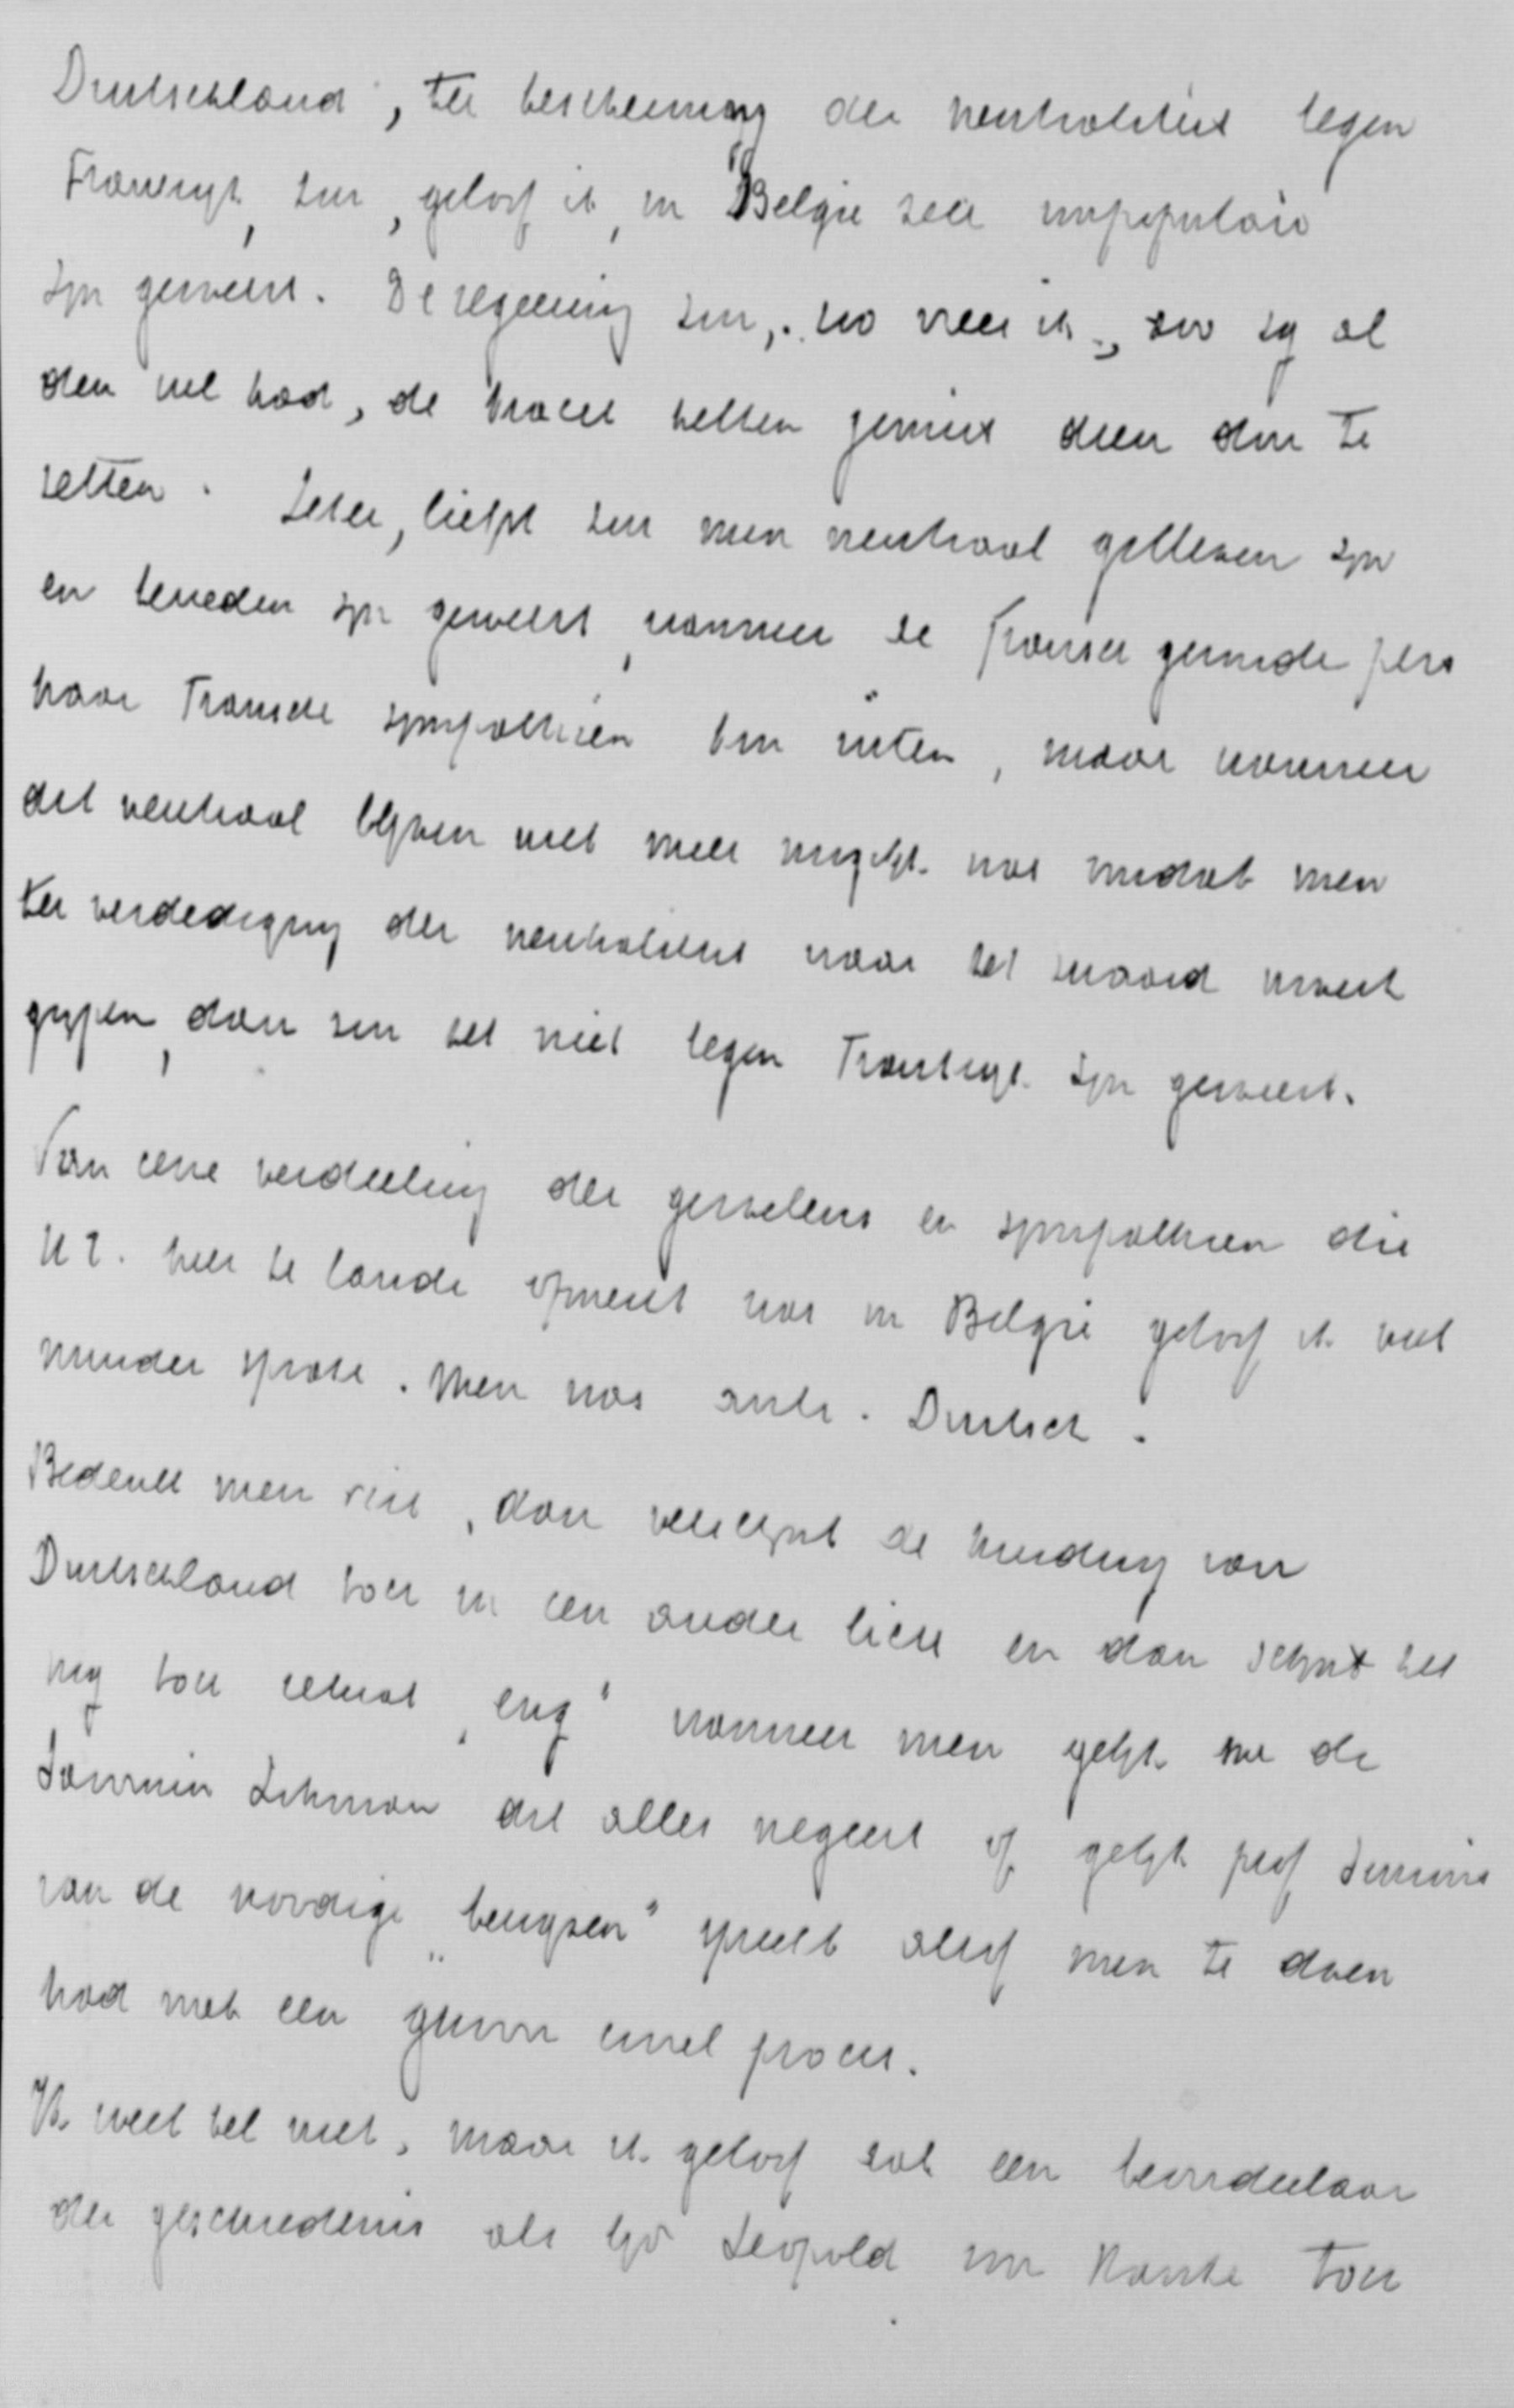 Duitschland, ter bescherming der neutraliteit tegen
Frankrijk, zou, geloof ik, in België zeer impopulair
zijn geweest. De regeering zou, zoo vrees ik, zoo zij al
den wil had, de kracht hebben gemist dien door te
zetten. Zeker, liefst zou men neutraal gebleven zijn
en tevreden zijn geweest, wanneer de Fransch gezinde pers
haar Fransche sympathieën kon uiten, maar wanneer
dit neutraal blijven niet meer mogelijk was omdat men
ter verdediging der neutraliteit naar het zwaard moest
grijpen, dan zou het niet tegen Frankrijk zijn geweest.
Van eene verdeeling der gevoelens en sympathieen die
U hier te lande opmerkt was in België geloof ik niet
minder sprake. Men was anti-Duitsch.
Bedenkt men dit, dan verschijnt de houding van
Duitschland toch in een ander licht en dan schijnt het
mij toch ietwat „eng" wanneer men gelijk de
Savornin Lohman dit alles negeert of gelijk prof
van de noodige „bewijzen" spreekt alsof men te doen
had met een gewoon civiel proces.
Ik weet het niet, maar ik geloof dat een beoordeelaar
der geschiedenis als bijv Leopold von Ranke toch